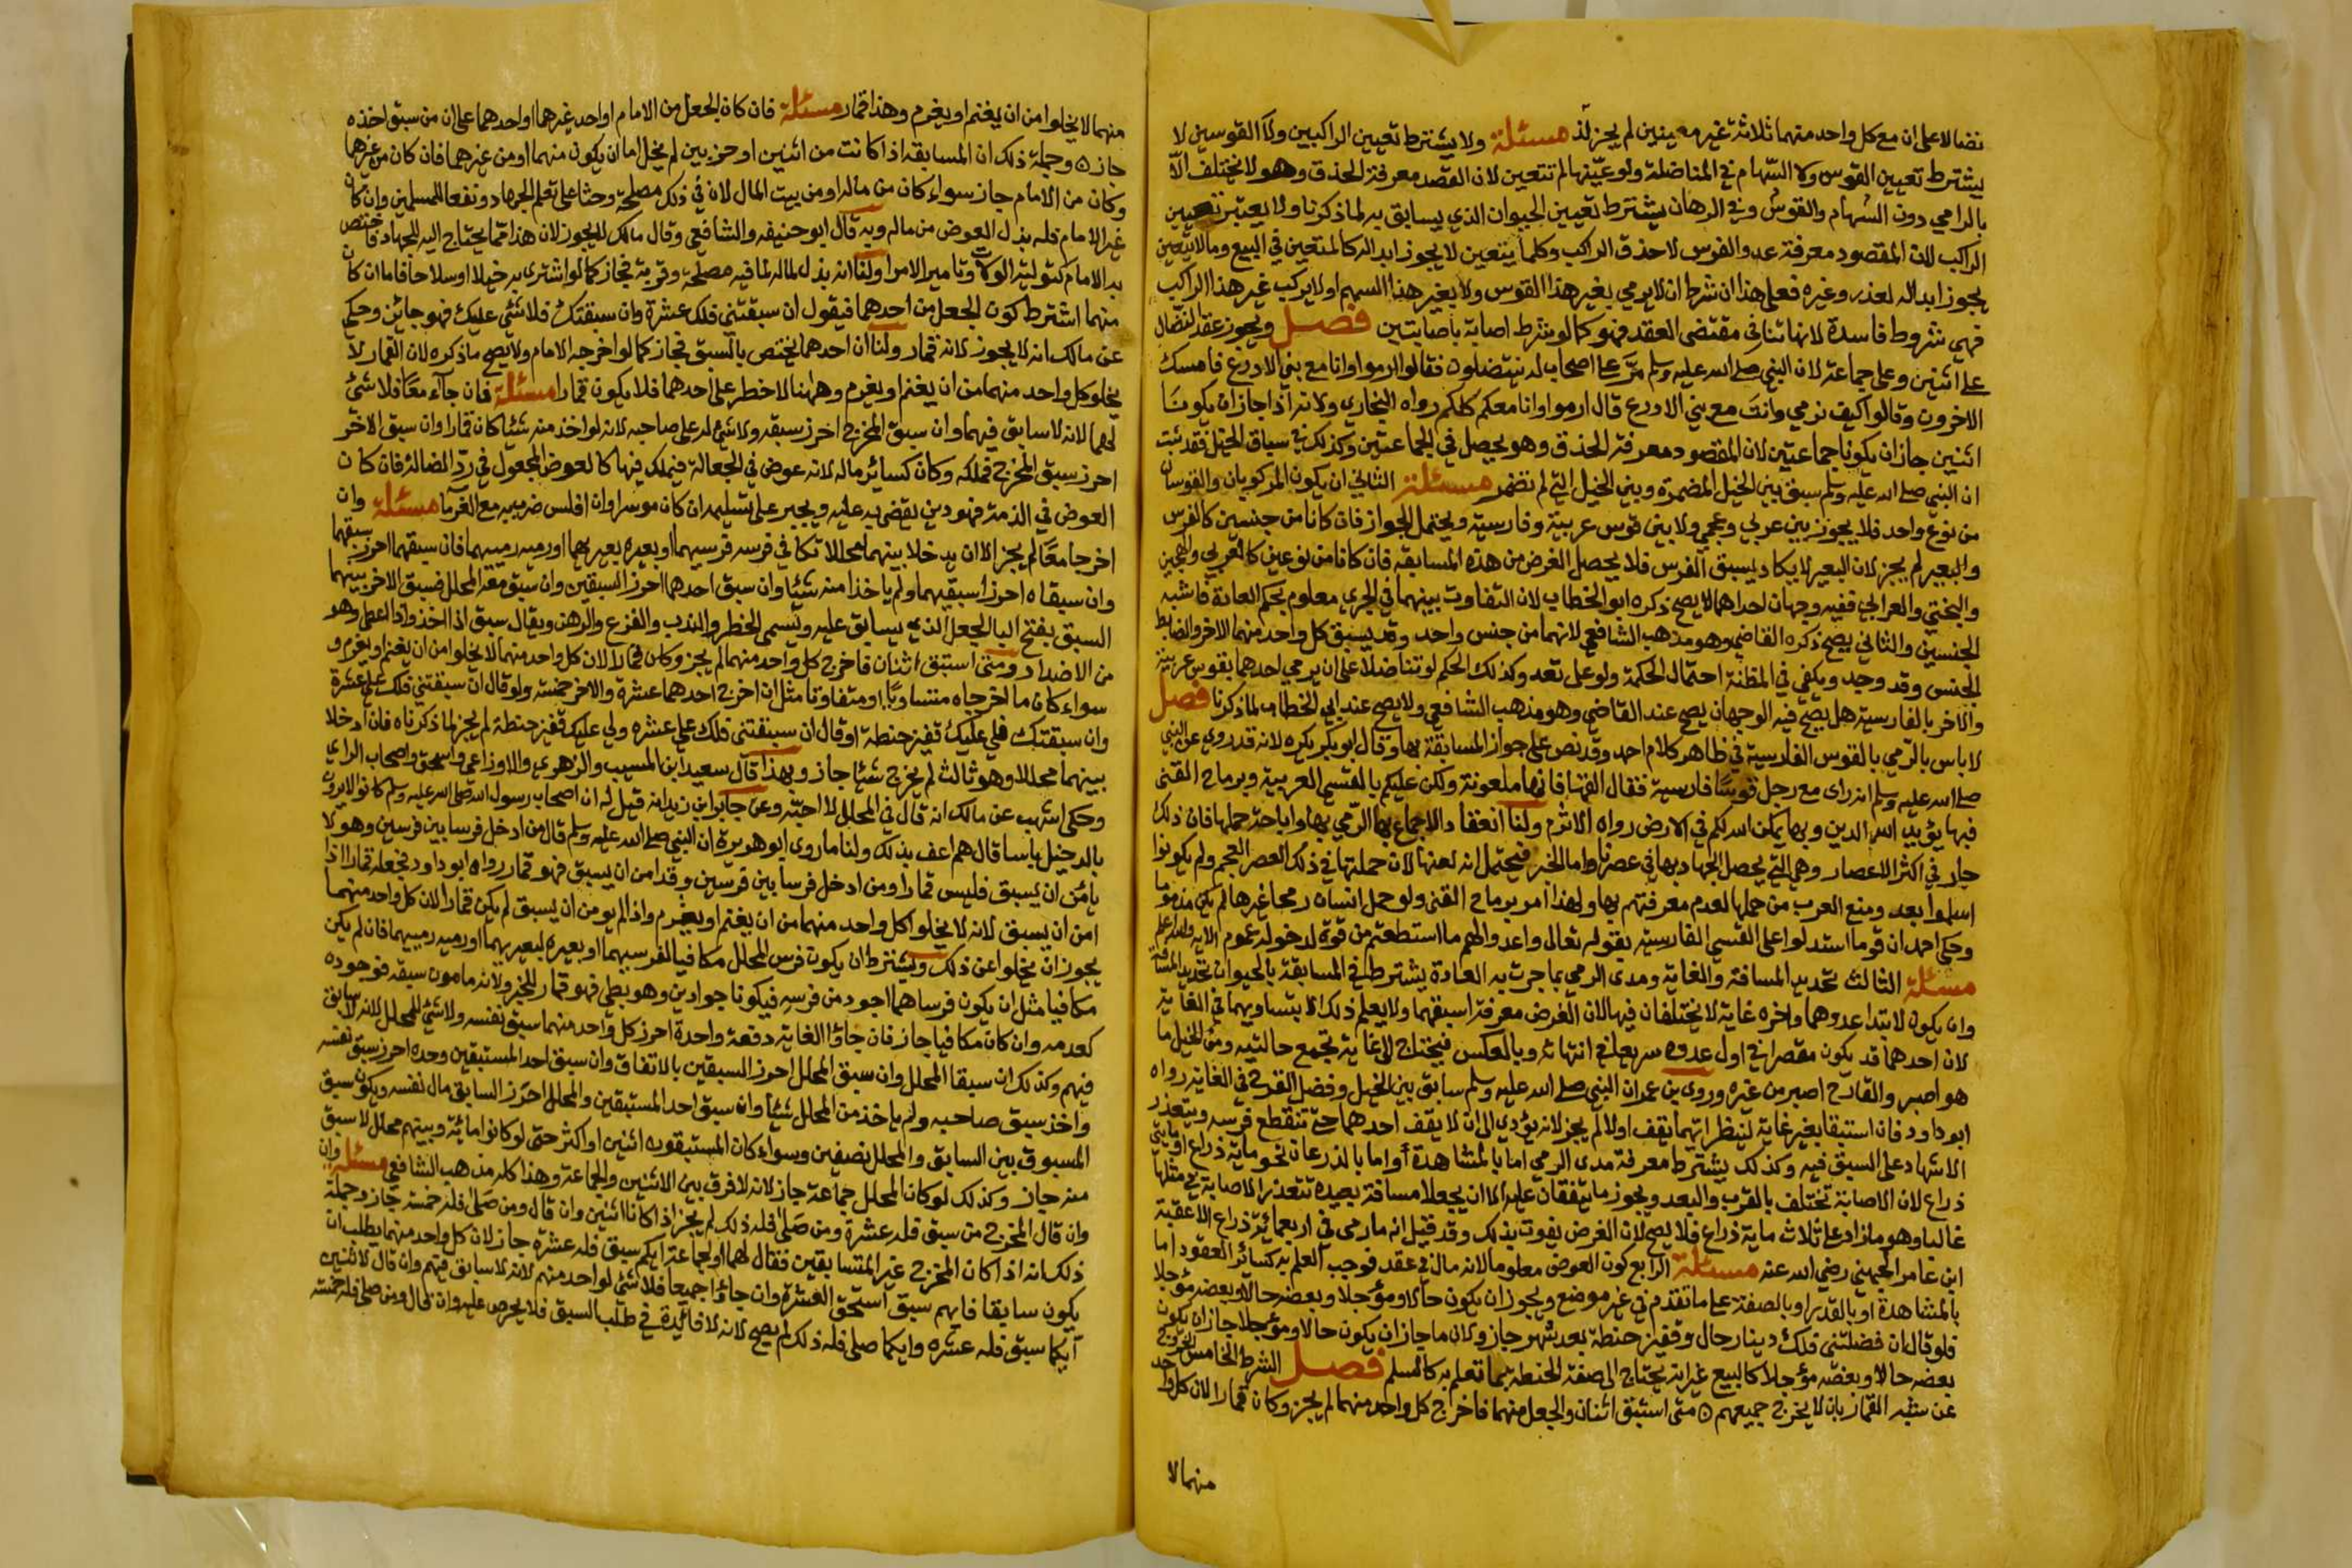 نضالا على ان مع كل واحد منهما ثلاثة غير معينين لم يجز لذ مسئلة ولا يشترط تعيين الراكبين ولا القوسين لا
يشترط تعيين القوس ولا السهام في المناضلة ولو عيّنها لم تتعين لان القصد معرفة الحذق وهو لا يختلف الّا
بالرامي دون السهام والقوس وفي الرهان يشترط تعيين الحيوان الذي يسابق به لما ذكرنا ولا يعتبر تعيين
الراكب لان المقصود معرفة عدو الفرس لا حذق الراكب وكلما يتعين لا يجوز ابداله كالمتعين في البيع وما لا يتعين
يجوز ابداله لعذر وغيره فعلى هذا ان شرط ان لا يرمي بغير هذا القوس ولا بغير هذا السهم او لا يركب غير هذا الراكب
فهي شروط فاسدة لانها تنافي مقتضى العقد فهو كما لو شرط اصابة باصابتين فصل ويجوز عقد النضال
على اثنين وعلى جماعة لان النبي صلى الله عليه وسلم مرّ على اصحاب له ينتضلون فقال ارموا وانا مع بني الادرع فامسك
الاخرون وقالوا كيف نرمي وانت مع بني الادرع قال ارموا وانا معكم كلكم رواه البخاري ولانه اذا جاز ان يكونا
اثنين جاز ان يكونا جماعتين لان المقصود معرفة الحذق وهو يحصل في الجماعتين وكذلك في سباق الخيل فقد ثبت
ان النبي صلى الله عليه وسلم سبق بين الخيل المضمرة وبين الخيل التي لم تضمر مسئلة الثاني ان يكون المركوبان والقوسان
من نوع واحد فلا يجوز بين عربي وعجمي ولا بين قوس عربية وفارسية ويحتمل الجواز فان كانا من جنسين كالفرس
والبعير لم يجز لان البعير لا يكاد يسبق الفرس فلا يحصل الغرض من هذه المسابقة فان كانا من نوعين كالعربي والهجين
والبختي والعرابي ففيه وجهان احدهما لا يصح ذكره ابو الخطاب لان التفاوت بينهما في الجري معلوم بحكم العادة فاشبه
الجنسين والثاني يصح ذكره القاضي وهو مذهب الشافعي لانهما من جنس واحد وقد يسبق كل واحد منهما الاخر والضابط
الجنس وقد وجد ويكفي في المظنة احتمال الحكمة ولو على بعد وكذلك الحكم لو تناضلا على ان يرمي احدهما بقوس عربية
والآخر بالفارسية هل يصح فيه الوجهان يصح عند القاضي وهو مذهب الشافعي ولا يصح عند ابي الخطاب لما ذكرنا فصل
لا باس بالرمي بالقوس الفارسية في ظاهر كلام احمد وقد نص على جواز المسابقة بها وقال ابو بكر يكره لانه قد روي عن النبي
صلى الله عليه وسلم انه راى مع رجل قوسا فارسية فقال القها فانها ملعونة ولكن عليكم بالقسي العربية وبرماح القنى
فبها يؤيد الله الدين وبها يمكن الله لكم في الارض رواه الاثرم ولنا انعقاد الاجماع بها الرمي بها واباحة حملها فان ذلك
جار في اكثر الاعصار وهي التي يحصل الجهاد بها في عصرنا واما الخبر فيحتمل انه لعنها لان حملتها في ذلك العصر العجم ولم يكونوا
اسلموا بعد ومنع العرب من حملها لعدم معرفتهم بها ولهذا امر برماح القنى ولو حمل انسان رمحا غيرها لم يكن مذموما
وحكى احمد ان قوما استدلوا على القسي الفارسية بقوله تعالى واعدوا لهم ما استطعتم من قوة لدخوله في عموم الاية والله اعلم
مسئلة الثالث تحديد المسافة والغاية ومدى الرمي بما جرت به العادة يشترط في المسابقة بالحيوان تحديد المسافة
وان يكون لابتدا عدوهما واخره غاية لا يختلفان فيها لان الغرض معرفة اسبقهما ولا يعلم ذلك الا بتساويهما في الغاية
لان احدهما قد يكون مقصرا في اول عدوه سريعا في انتهائه وبالعكس فيحتاج الى غاية تجمع حالتيه ومن الخيل ما
هو اصبر والقارح اصبر من غيره وروى بن عمر ان النبي صلى الله عليه وسلم سابق بين الخيل وفضل القرح في الغاية رواه
ابو داود فان استبقا بغير غاية لينظرا ايهما يقف اولا لم يجز لانه يؤدي الى ان لا يقف احدهما حتى تنقطع فرسه ويتعذر
الاشهاد على السبق فيه وكذلك يشترط معرفة مدى الرمي اما بالمشاهدة او اما بالذرعان نحو ماية ذراع او مايتي
ذراع لان الاصابة تختلف بالقرب والبعد ويجوز ما يتفقان عليه الا ان يجعلا مسافة بعيدة تتعذر الاصابة في مثلها
غالبا وهو ما زاد على ثلاث ماية ذراع فلا يصح لان الغرض يفوت بذلك وقد قيل انه ما رمى في اربعماية ذراع الا عقبة
ابن عامر الجهني رضي الله عنه مسئلة الرابع كون العوض معلوما لانه مال في عقد فوجب العلم به كسائر العقود اما
بالمشاهدة او بالقدر او بالصفة على ما تقدم في غير موضع ويجوز ان يكون حالا ومؤجلا وبعضه حالا وبعضه مؤجلا
فلو قال ان فضلتني فلك دينار حال وقفيز حنطة بعد شهر جاز ولان ما جاز ان يكون حالا ومؤجلا جاز ان يكون
بعضه حالا وبعضه مؤجلا كالبيع غير انه يحتاج الى صفة الحنطة بما تعلم به كالسلم فصل الشرط الخامس الخروج
عن شبه القمار بان لا يخرج جميعهم متى استبق اثنان والجعل منهما فاخرج كل واحد منهما لم يجز وكان قمارا لان كل واحد
منهما لا
منهما لا يخلوا من ان يغنم او يغرم وهذا قمار مسئلة فان كان الجعل من الامام او احد غيرهما او احدهما على ان من سبق اخذه
جاز وجملة ذلك ان المسابقة اذا كانت من اثنين او حزبين لم يخل اما ان يكون منهما او من غيرهما فان كان من غيرهما
وكان من الامام جاز سواء كان من ماله او من بيت المال لان في ذلك مصلحة وحثا على تعلم الجهاد ونفعا للمسلمين وان كان
غير الامام فله بذل العوض من ماله وبه قال ابو حنيفه والشافعي وقال مالك لا يجوز لان هذا مما يحتاج اليه للجهاد فاختص
به الامام كتولية الولات وتامير الامرا ولنا انه بذل لماله لما فيه مصلحة وقربة فجاز كما لو اشترى به خيلا او سلاحا فاما ان كان
منهما اشترط كون الجعل من احدهما فيقول ان سبقتني فلك عشرة وان سبقتك فلا شئ عليك فهو جائز وحكي
عن مالك انه لا يجوز لانه قمار ولنا ان احدهما يختص بالسبق فجاز كما لو اخرجه الامام ولا يصح ما ذكره لان القمار لا
يخلو كل واحد منهما من ان يغنم او يغرم وههنا لا خطر على احدهما فلا يكون قمارا مسئلة فان جآء معا فلا شئ
لهما لانه لا سابق فيهما وان سبق المخرج احرز سبقه ولا شئ له على صاحبه لانه لو اخذ منه شئا كان قمارا وان سبق الاخر
احرز سبق المخرج فملكه وكان كسائر ماله لانه عوض في الجعالة فيملك فيها كالعوض المجعول في ردّ الضالة فان كان
العوض في الذمة فهو دين يقضى به عليه ويجبر على تسليمه ان كان موسرا وان افلس ضرب به مع الغرما مسئلة وان
اخرجا معا لم يجز الا ان يدخلا بينهما محللا تكافي فرسه فرسيهما او بعيره بعيريهما او رميه رمييهما فان سبقهما احرز سبقهما
وان سبقاه احرزا سبقيهما ولم ياخذا منه شئا وان سبق احدهما احرز السبقين وان سبق معه المحلل فسبق الاخر بينهما
السبق بفتح البا الجعل الذي يسابق عليه وتسمى الخطر والندب والقرع والرهن ويقال سبق اذا اخذ واذا اعطى وهو
من الاضداد ومتى استبق اثنان فاخرج كل واحد منهما لم يجز وكان قمارا لان كل واحد منهما لا يخلوا من ان يغنم او يغرم و
سواء كان ما اخرجاه متساويا او متفاوتا مثل ان اخرج احدهما عشرة والاخر خمسة ولو قال ان سبقتني فلك علي عشرة
وان سبقتك فلي عليك قفيز حنطة او قال ان سبقتني فلك علي عشره ولي عليك قفيز حنطة لم يجز لما ذكرناه فان ادخلا
بينهما محللا وهو ثالث لم يخرج شئا جاز وبهذا قال سعيد ابن المسيب والزهري والاوزاعي واسحق واصحاب الراي
وحكى اشهب عن مالك انه قال في المحلل لا احبه وعن جابر ابن زيد انه قيل له ان اصحاب رسول الله صلى الله عليه وسلم كانوا لا يرون
بالدخيل باسا قال هم اعف بذلك ولنا ما روى ابو هريرة ان النبي صلى الله عليه وسلم قال من ادخل فرسا بين فرسين وهو لا
يامن ان يسبق فليس قمارا ومن ادخل فرسا بين فرسين وقد امن ان يسبق فهو قمار رواه ابو داود فجعله قمارا اذا
امن ان يسبق لانه لا يخلوا كل واحد منهما من ان يغنم او يغرم واذا لم يومن ان يسبق لم يكن قمارا لان كل واحد منهما
يجوز ان يخلوا عن ذلك ويشترط ان يكون فرس المحلل مكافيا لفرسيهما او بعيره لبعيريهما او رميه رمييهما فان لم يكن
مكافيا مثل ان يكون فرساهما اجود من فرسه فيكونا جوادين وهو بطي فهو قمار للخبر ولانه مامون سبقه فوجوده
كعدمه وان كان مكافيا جاز فان جاؤا الغاية دفعة واحدة احرز كل واحد منهما سبق نفسه ولا شئ للمحلل لانه لا سابق
فيهم وكذلك ان سبقا المحلل وان سبق المحلل احرز السبقين بالاتفاق وان سبق احد المستبقين وحده احرز سبق نفسه
واخذ سبق صاحبه ولم ياخذ من المحلل شئا وان سبق احد المستبقين والمحلل احرز السابق مال نفسه ويكون سبق
المسبوق بين السابق والمحلل نصفين وسواء كان المستبقون اثنين او اكثر حتى لو كانوا مائة وبينهم محلل لا سبق
منه جاز وكذلك لو كان المحلل جماعة جاز لانه لا فرق بين الاثنين والجماعة وهذا كله مذهب الشافعي مسئلة وان
وان قال المخرج من سبق فله عشرة ومن صلى فله ذلك لم يجز اذا كانا اثنين وان قال ومن صلى فله خمسة جاز وجملة
ذلك انه اذا كان المخرج غير المتسابقين فقال لهما او لجماعة ايكم سبق فله عشرة جاز لان كل واحد منهما يطلب ان
يكون سابقا فايهم سبق استحق العشرة وان جاؤا جميعا فلا شئ لواحد منهم لانه لا سابق فيهم وان قال لاثنين
أيكما سبق فله عشره وايكما صلى فله ذلك لم يصح لانه لا فائدة في طلب السبق فلا يحرص عليه وان قال ومن صلى فله خمسة